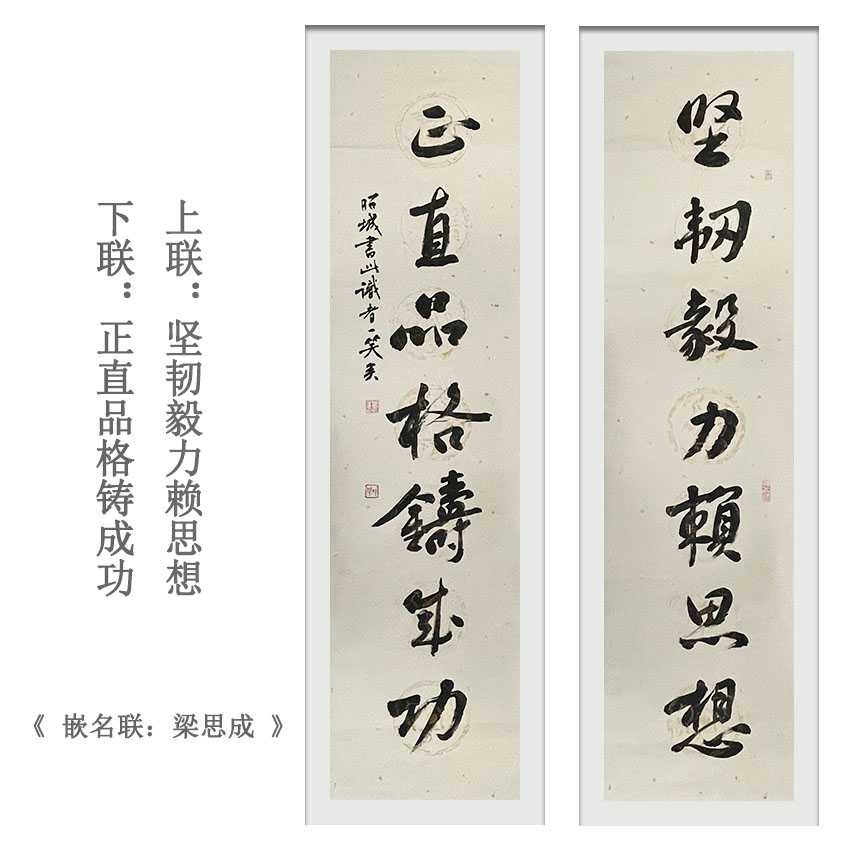 上联：坚韧毅力赖思想
下联：正直品格铸成功
《 嵌名联：梁思成 》
坚韧毅力賴思想
正直品格鑄成功
昭城書此識者一笑矣